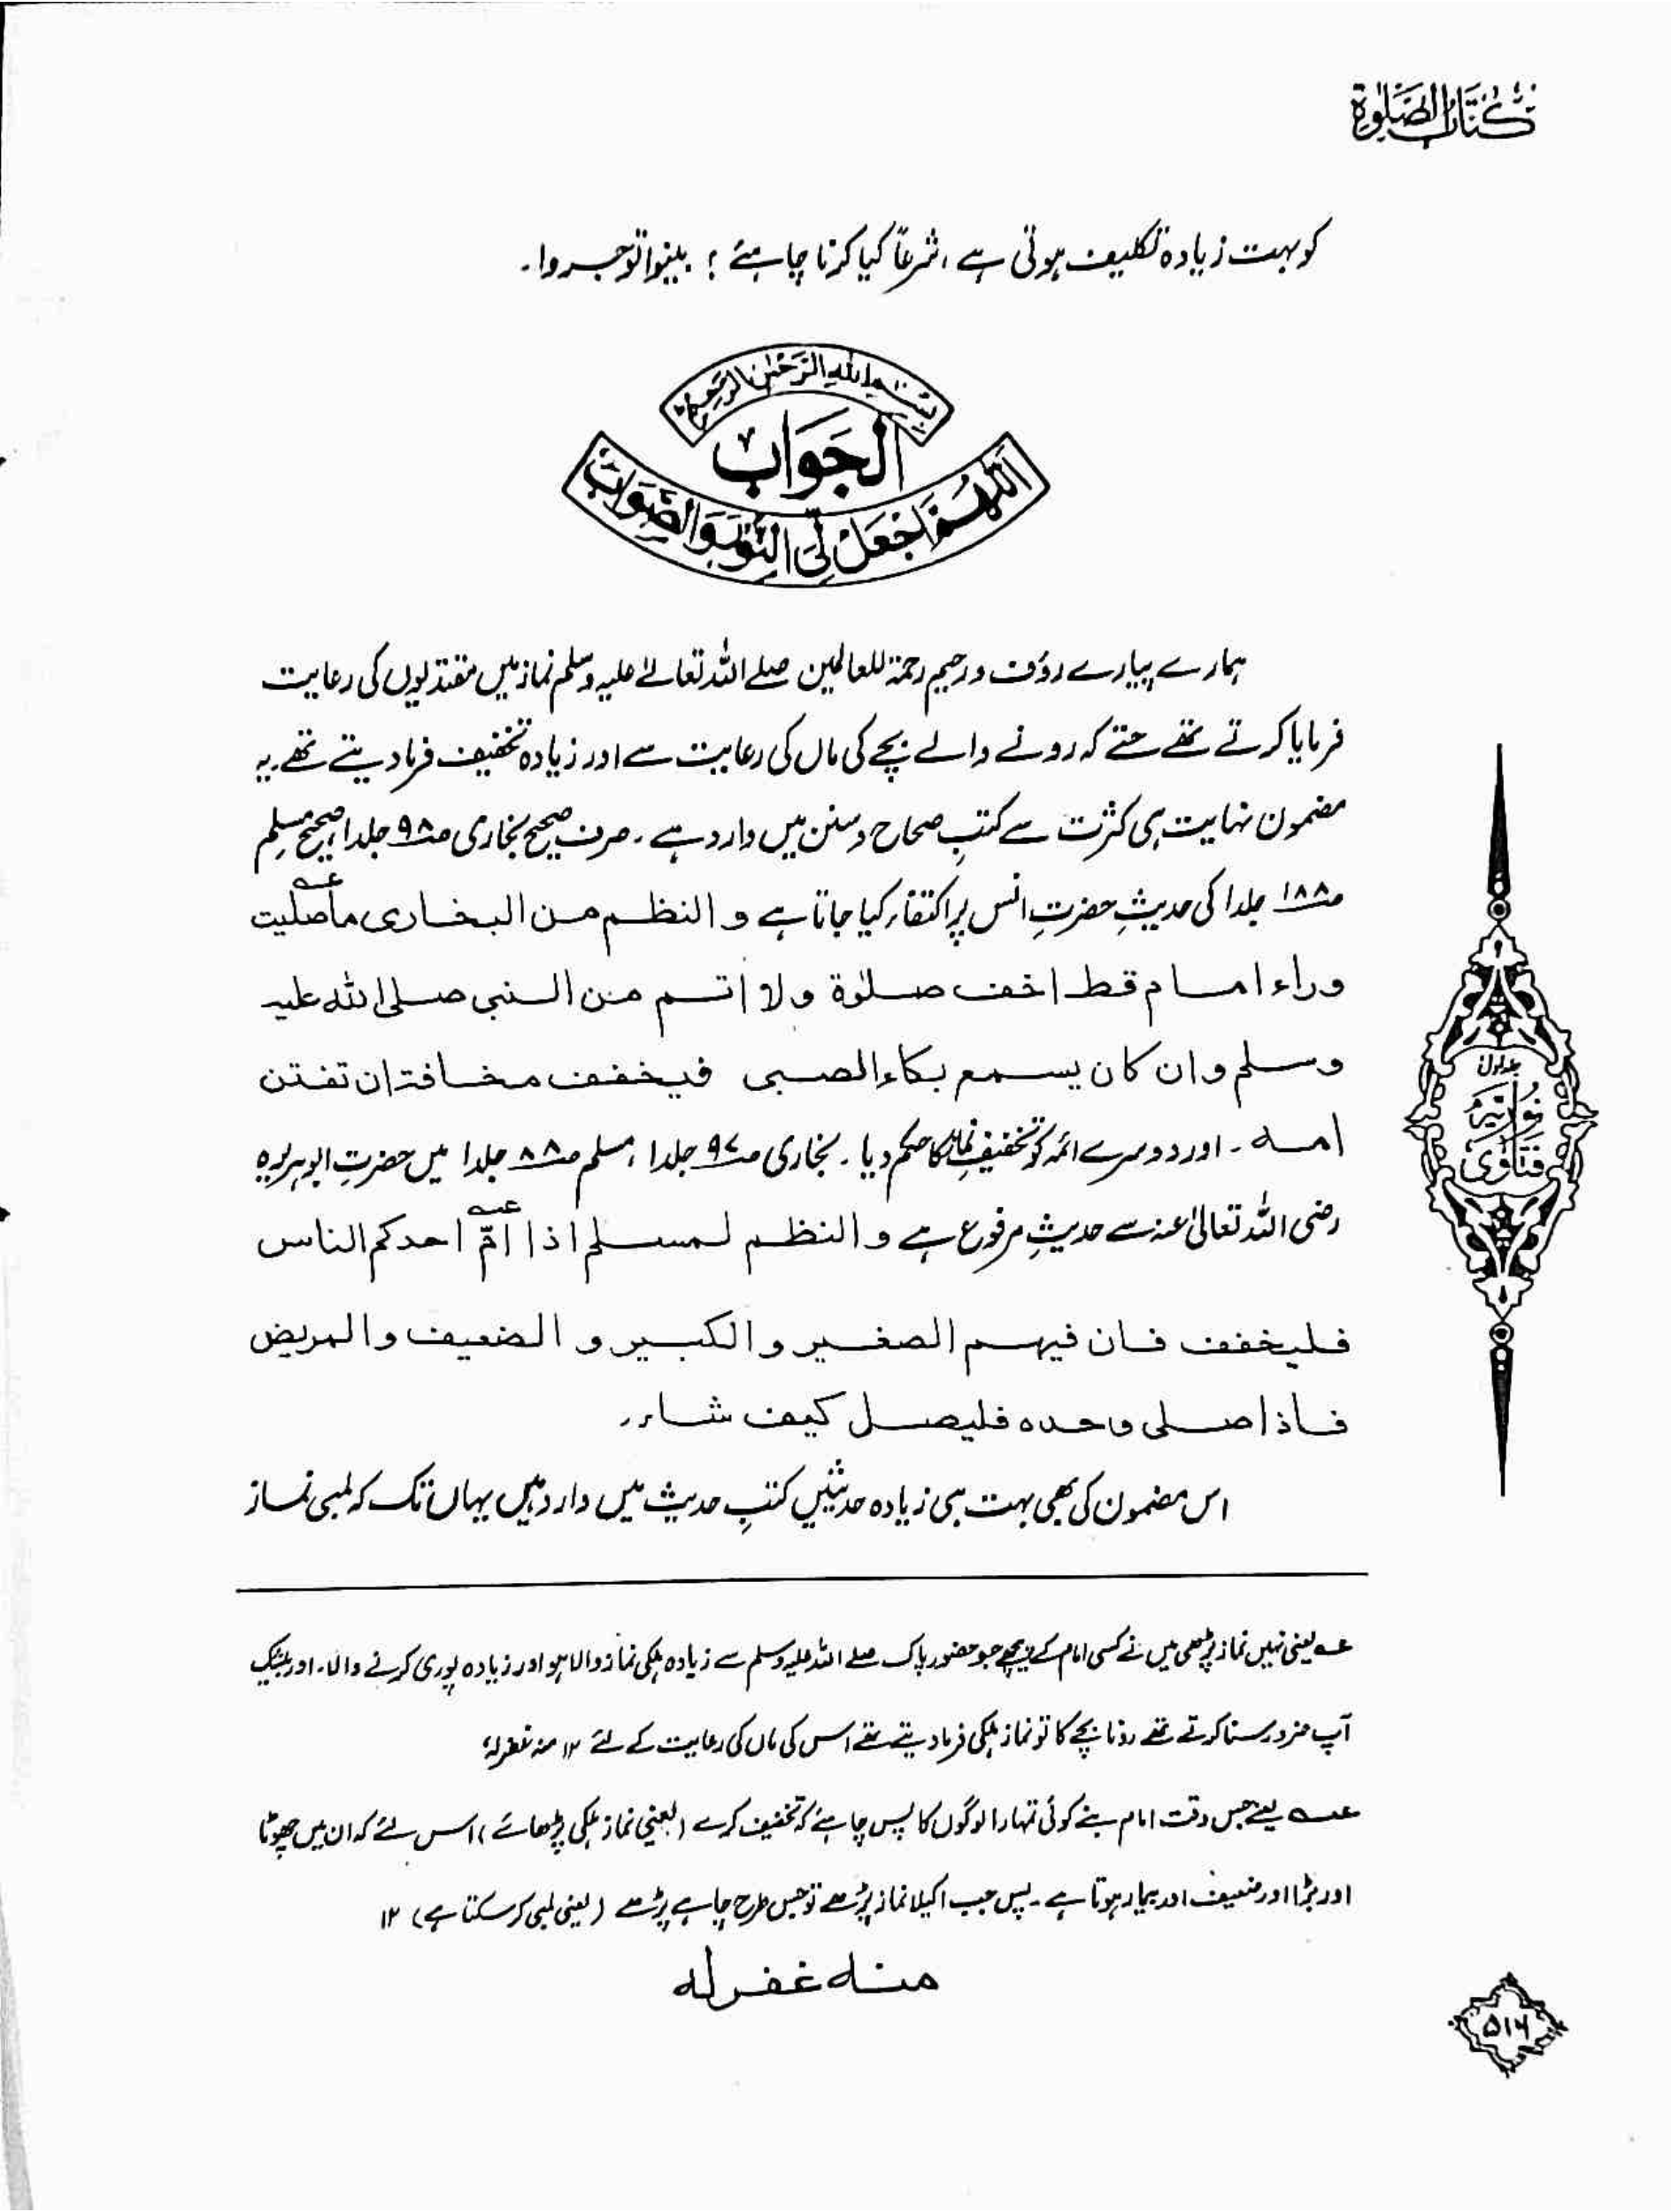 كتاب الصلوة
کو بہت زیادہ تکلیف ہوتی ہے، شرعاً کیا کرنا چاہیئے؟ بینوا توجروا۔
بسم الله الرحمن الرحيم
الجواب
اللهم اجعل لي النور والصواب
ہمارے پیارے رؤف و رحیم رحمۃ للعالمین صلے اللہ تعالےٰ علیہ وسلم نماز میں مقتدیوں کی رعایت
فرمایا کرتے تھے حتے کہ رونے والے بچے کی ماں کی رعایت سے اور زیادہ تخفیف فرما دیتے تھے۔ یہ
مضمون نہایت ہی کثرت سے کتبِ صحاح و سنن میں وارد ہے۔ صرف صحیح بخاری ص۹۸ جلد۱، صحیح مسلم
ص۱۸۸ جلد۱ کی حدیثِ حضرتِ انس پر اکتفاء کیا جاتا ہے و النظم من البخاری ما صلیت عہ
وراء امام قط اخف صلوٰة ولا اتم من النبی صلی اللہ علیہ
وسلم وان کان یسمع بکاء الصبی فیخفف مخافة ان تفتن
امه۔ اور دوسرے ائمہ کو تخفیفِ نماز کا حکم دیا۔ بخاری ص۹۷ جلد۱، مسلم ص۱۸۸ جلد۱ میں حضرتِ ابوہریرہ
رضی اللہ تعالیٰ عنہ سے حدیثِ مرفوع ہے و النظم لمسلم اذا امّ عہ احدکم الناس
فلیخفف فان فیهم الصغیر و الکبیر و الضعیف و المریض
فاذا صلی وحده فلیصل کیف شاء۔
اس مضمون کی بھی بہت ہی زیادہ حدیثیں کتبِ حدیث میں وارد ہیں یہاں تک کہ لمبی نماز
عہ یعنی نہیں نماز پڑھی میں نے کسی امام کے پیچھے جو حضور پاک صلے اللہ علیہ وسلم سے زیادہ ہلکی نماز والا ہو اور زیادہ پوری کرنے والا۔ اور بیشک
آپ ضرور سنا کرتے تھے رونا بچے کا تو نماز ہلکی فرما دیتے تھے اس کی ماں کی رعایت کے لئے ۱۲ منہ غفرلہٗ
عہ یعنے جس وقت امام بنے کوئی تمہارا لوگوں کا پس چاہئے کہ تخفیف کرے (یعنی نماز ہلکی پڑھائے)، اس لئے کہ ان میں چھوٹا
اور بڑا اور ضعیف اور بیمار ہوتا ہے۔ پس جب اکیلا نماز پڑھے تو جس طرح چاہے پڑھے (یعنی لمبی کر سکتا ہے) ۱۲
منه غفرله
جلد اول
نوریہ
فتاوی
۵۱۶